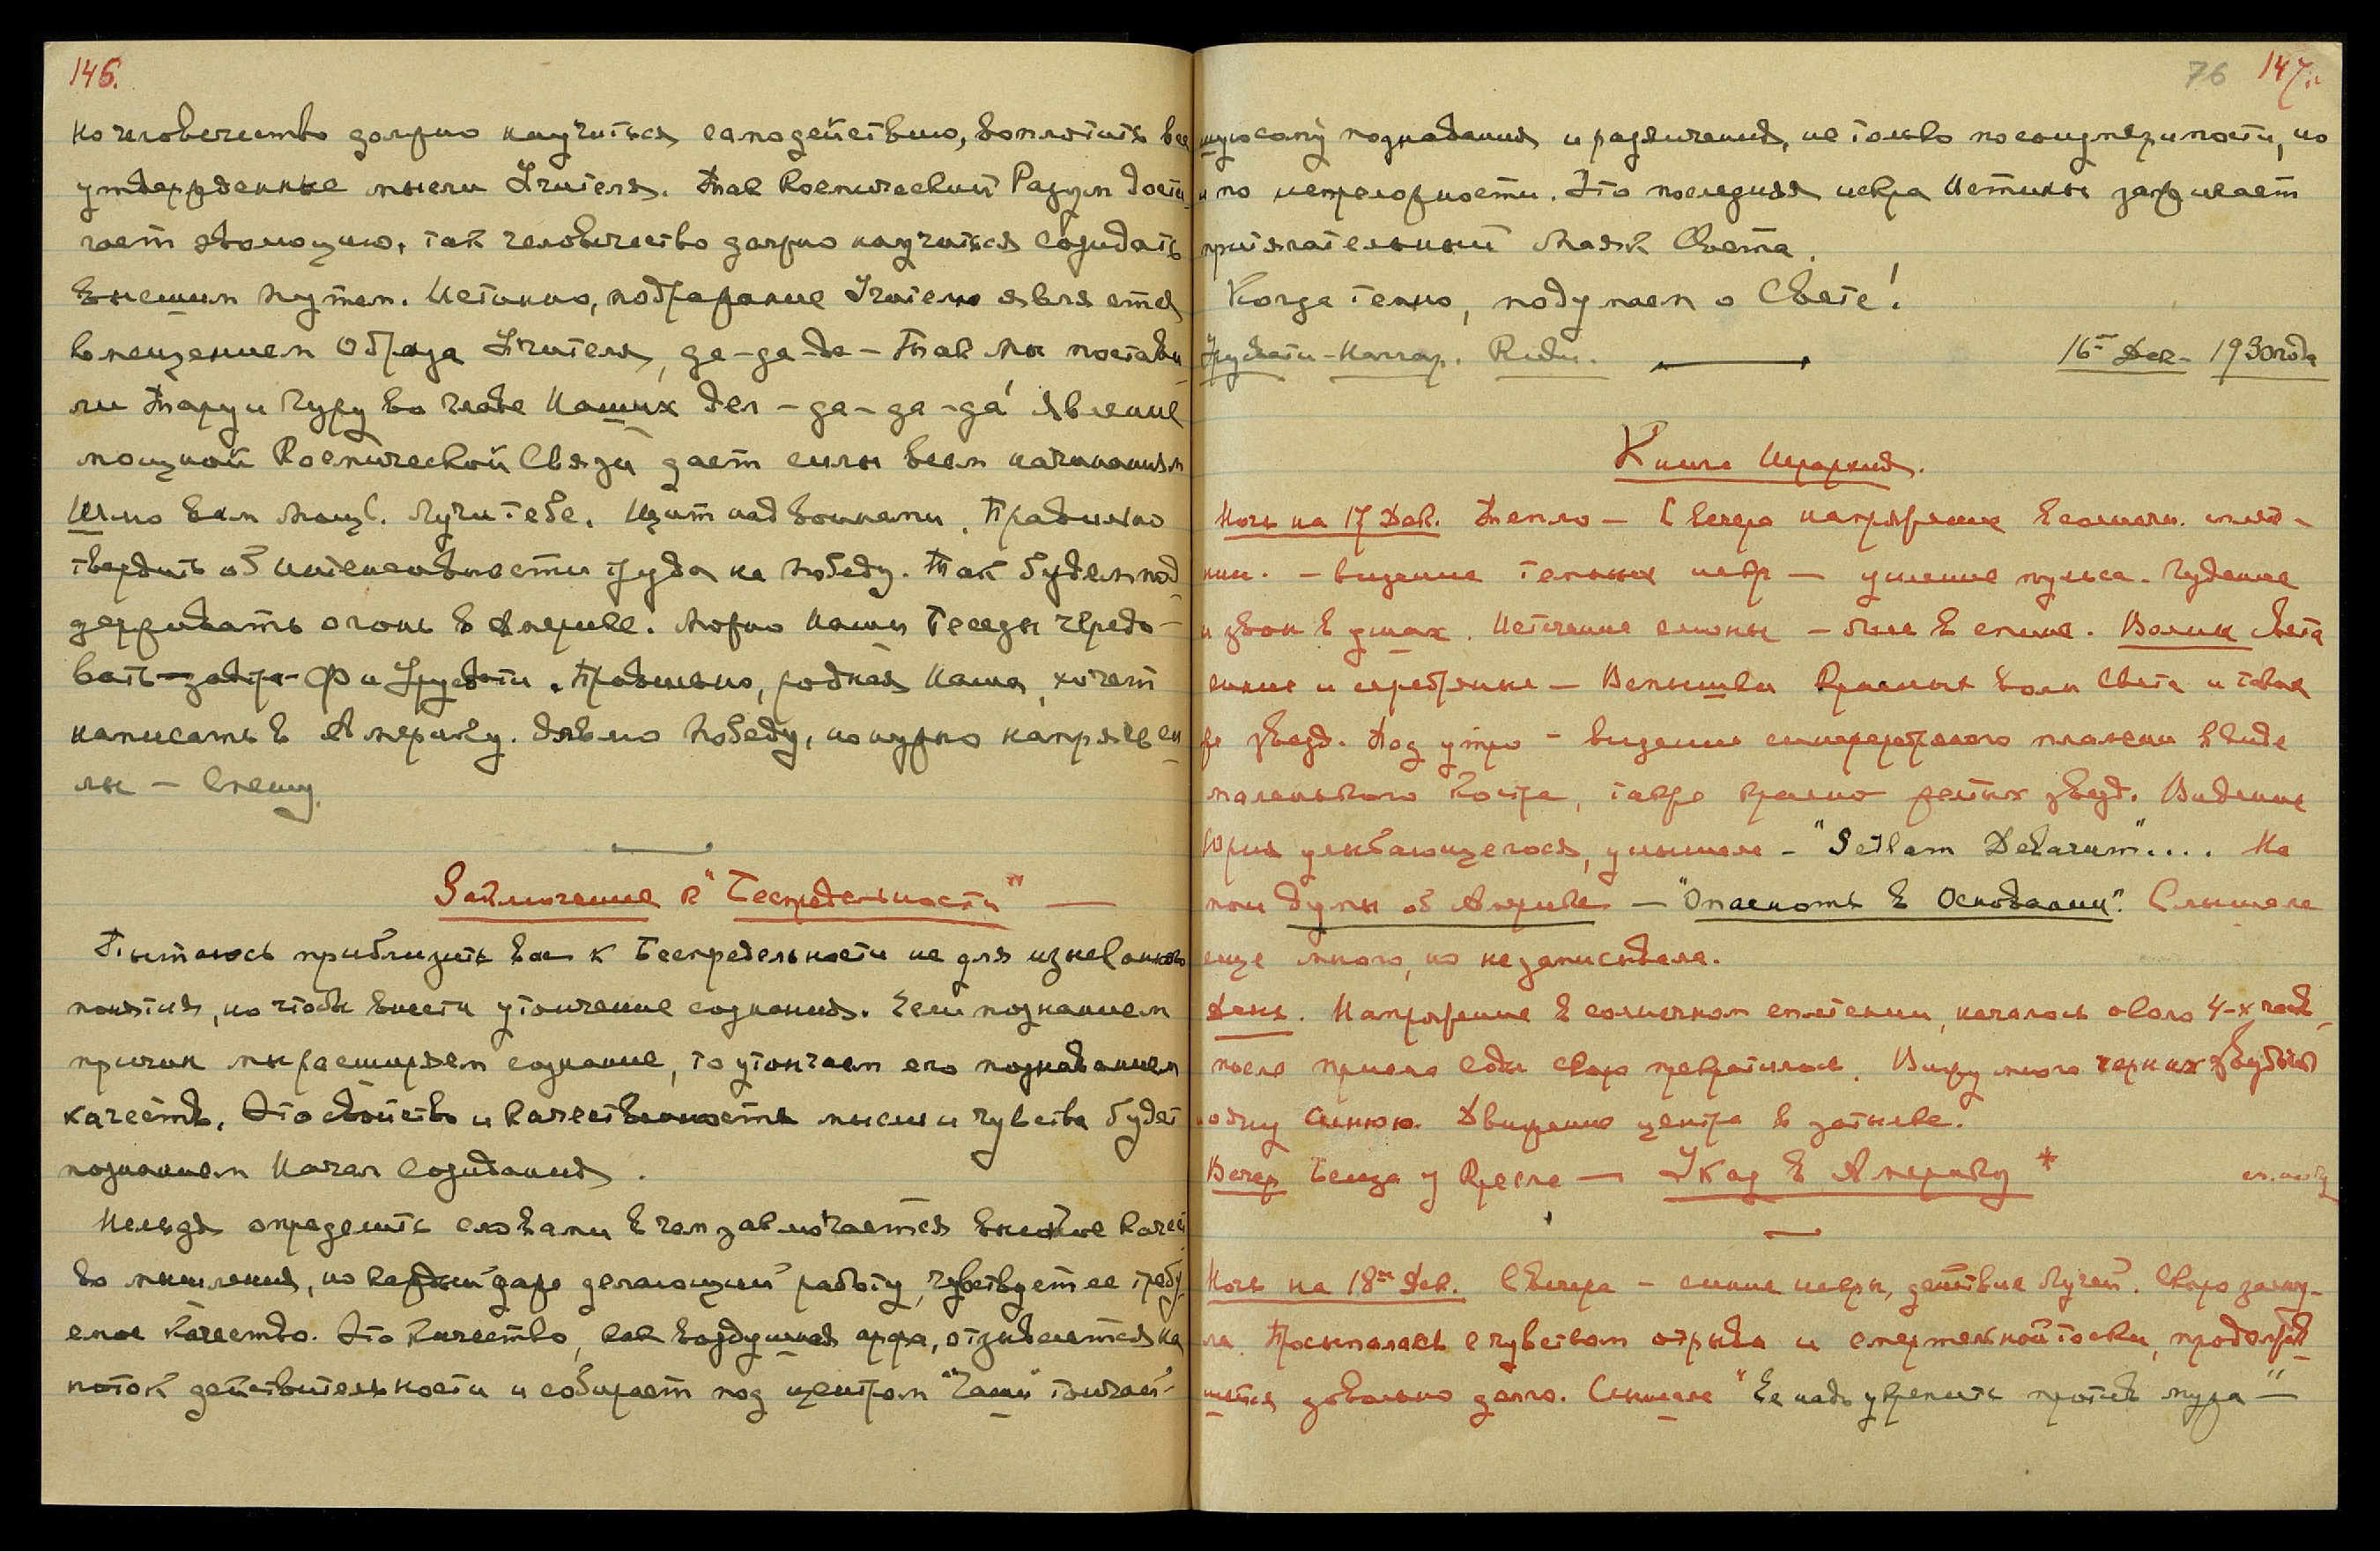 146.
но человечество должно научиться самодействию, воплотить все
утвержденные мысли Учителя. Так Космический Разум дости-
гает эволюцию, так человечество должно научиться созидать
высшим путем. Истинно, подражание Учителю является
вмещением Образа Учителя, да-да-да – Так Мы постави-
ли Тару и Гуру во главе Наших дел – да-да-да! явление
мощной Космической Связи дает силы всем начинаниям
Шлю вам мощь. Лучи тебе. Щит над воинами. Правильно
твердить об интенсивности труда на победу. Так будем под-
держивать огонь в Америке. Можно Наши Беседы чередо-
вать – завтра – Ф и Урусвати. Правильно, родная Наша, хочет
написать в Америку. Явлю победу, но нужно напрячь си-
лы – Спешу.
Заключение к "Беспредельности" —
Пытаюсь приблизить вас к Беспредельности не для изысканного
понятия, но чтобы внести утончение сознания. Если познанием
причин мы расширяем сознание, то утончаем его познаванием
качеств. Это свойство и качественность мысли и чувства будет
познанием Начал Созидания.
Нельзя определить словами в чем заключается высшее качест-
во мышления, но каждый даже делающий работу, чувствует ее требу-
емое качество. Это качество, как воздушная арфа, отзывается на
поток действительности и собирает под центром "Чаши" тончай-
76 147.
шую сому познавания и различения, не только по соизмеримости, но
и по непреложности. Это последняя искра Истины зажигает
притягательный Маяк Света.
Когда темно, подумаем о Свете!
Урусвати – Наггар. Кулу. 16го Дек– 1930 года
Книга Иерархия.
Ночь на 17 Дек. Тепло – С вечера напряжение в солнечн. сплете-
нии. – видение темных искр — усиление пульса. Гудение
и звон в ушах. Истечение слюны – боле в спине. Волны света
синие и серебряные – Вспышки Красных волн Света и также
же звезд. Под утро – видение синесеребряного пламени в виде
маленького костра, также красно желтых звезд. Видение
Юрия улыбающегося, услышала – "Setlam Devarum".... На
мои думы об Америке – "Опасность в Основании". Слышала
еще много, но не записывала.
День. Напряжение в солнечном сплетении, началось около 4-х час.
после приема соды скоро прекратилось. Вижу много черных звезд и
одну синюю. Движение центра в затылке.
Вечер Беседа у Кресла — Указ в Америку *
Ночь на 18ое Дек. С вечера – синие искры, действие Лучей. Скоро засну-
ла. Просыпалась с чувством отрыва и смертельной тоски, продолжав-
шейся довольно долго. Слышала "Ее надо укрепить против мужа" –